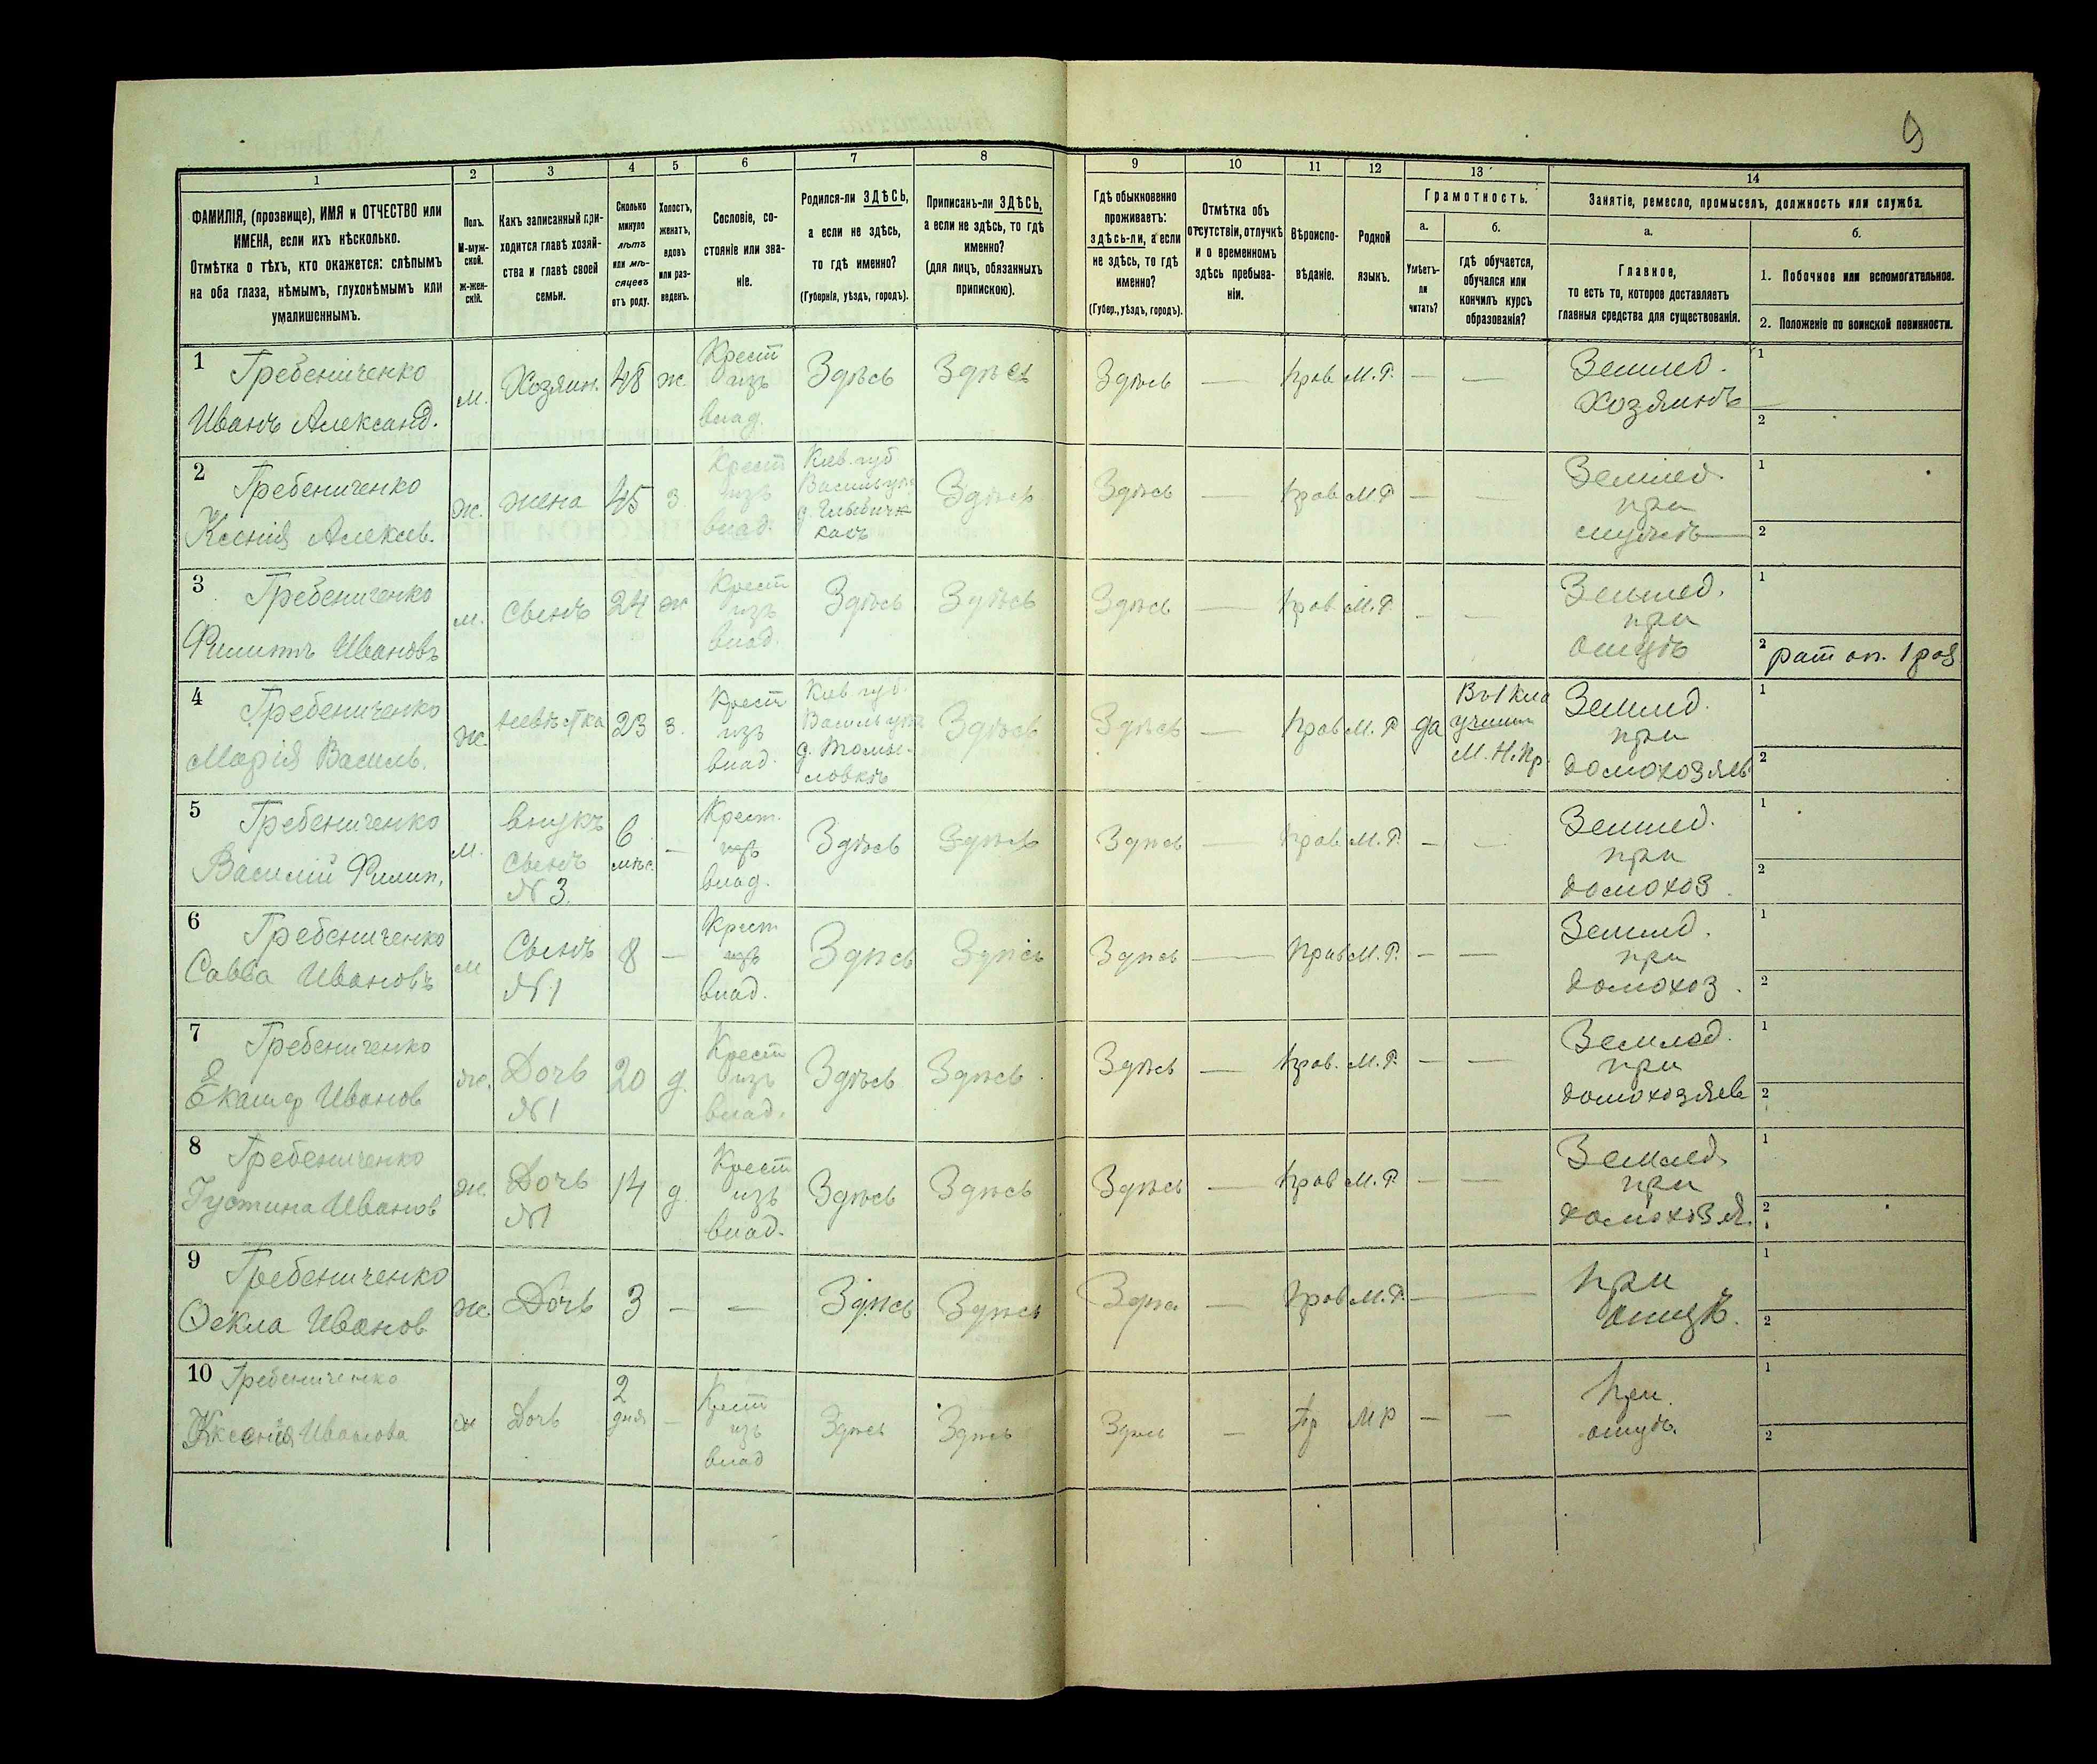 9
1
2
3
4
5
6
7
8
9
10
11
12
13
14
ФАМИЛІЯ, (прозвище), ИМЯ и ОТЧЕСТВО или
ИМЕНА, если ихъ нѣсколько.
Отмѣтка о тѣхъ, кто окажется: слѣпымъ
на оба глаза, нѣмымъ, глухонѣмымъ или
умалишеннымъ.
Полъ.
М-муж-
ской.
ж-жен-
скій.
Какъ записанный при-
ходится главѣ хозяй-
ства и главѣ своей
семьи.
Сколько
минуло
лѣтъ
или мѣ-
сяцевъ
отъ роду.
Холостъ,
женатъ,
вдовъ
или раз-
веденъ.
Сословіе, со-
стояніе или зва-
ніе.
Родился-ли ЗДѢСЬ,
а если не здѣсь,
то гдѣ именно?
(Губернія, уѣздъ, городъ).
Приписанъ-ли ЗДѢСЬ,
а если не здѣсь, то гдѣ
именно?
(для лицъ, обязанныхъ
припискою).
Гдѣ обыкновенно
проживаетъ:
здѣсь-ли, а если
не здѣсь, то гдѣ
именно?
(Губер., уѣздъ, городъ).
Отмѣтка объ
отсутствіи, отлучкѣ
и о временномъ
здѣсь пребыва-
ніи.
Вѣроиспо-
вѣданіе.
Родной
языкъ.
Грамотность.
а.
Умѣетъ-
ли
читать?
б.
гдѣ обучается,
обучался или
кончилъ курсъ
образованія?
Занятіе, ремесло, промыселъ, должность или служба.
а.
Главное,
то есть то, которое доставляетъ
главныя средства для существованія.
б.
1. Побочное или вспомогательное.
2. Положеніе по воинской повинности.
1 Гребениченко
Иванъ Александ.
м.
Хозяин.
48
ж.
Крест
изъ
влад.
Здѣсь
Здѣсь
Здѣсь
—
Прав.
М.Р.
—
—
Землед.
хозяинъ
1
2
2 Гребениченко
Ксенія Алексѣв.
ж.
жена
45
з
Крест
изъ
влад.
Кіев. губ
Васильу
Здѣсь
Здѣсь
—
Прав
М.Р
—
—
Землед.
при
мужѣ
1
2
3 Гребениченко
Филиппъ Ивановъ
м.
сынъ
24
ж
Крест
изъ
влад.
Здѣсь
Здѣсь
Здѣсь
—
Прав
М.Р.
—
—
Землед.
при
отцѣ
1
2 рат оп. 1 раз
4 Гребениченко
Марія Василь.
ж.
невѣстка
23
з.
Крест
изъ
влад.
Кіев губ.
Здѣсь
Здѣсь
—
Прав
М.Р
да
Въ 1 кла
училищ
М.Н.Пр.
Землед.
при
домохозяев
1
2
5 Гребениченко
Василій Филип.
м.
внукъ
сынъ
№ 3.
6
мѣс.
—
Крест.
изъ
влад.
Здѣсь
Здѣсь
Здѣсь
—
Прав.
М.Р.
—
—
Землед.
при
домохоз.
1
2
6 Гребениченко
Савва Ивановъ
м
Сынъ
№1
8
—
Крест
изъ
влад.
Здѣсь
Здѣсь
Здѣсь
—
Прав
М.Р.
—
—
Землед.
при
домохоз.
1
2
7 Гребениченко
Екатер Иванов
ж.
Дочь
№1
20
д.
Крест
изъ
влад.
Здѣсь
Здѣсь
Здѣсь
—
Прав.
М.Р.
—
—
Землед.
при
домохозяев
1
2
8 Гребениченко
Густина Иванов
ж.
Дочь
№1
14
д.
Крест
изъ
влад.
Здѣсь
Здѣсь
Здѣсь
—
Прав
М.Р.
—
—
Землед.
при
домохозя.
1
2
9 Гребениченко
Ѳекла Иванов
ж.
Дочь
3
—
—
Здѣсь
Здѣсь
—
Прав
М.Р.
—
—
При
отцѣ.
1
2
10 Гребениченко
Ксенія Иванова
ж
Дочь
2
дня
—
Крест
изъ
влад
Здѣсь
Здѣсь
Здѣсь
—
Пр
МР
—
—
При.
отцѣ.
1
2